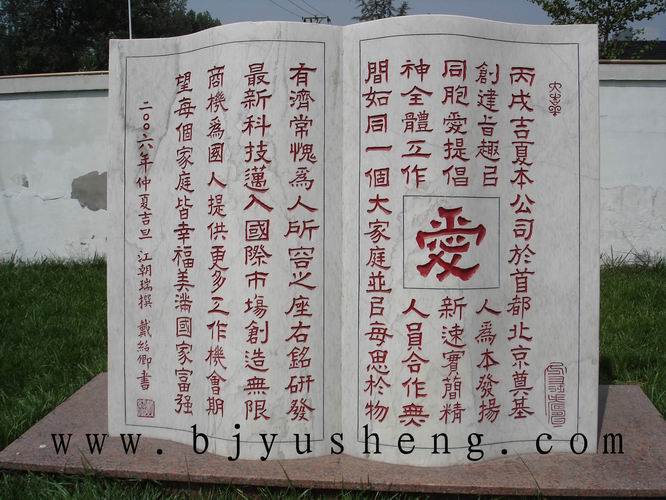 丙戌吉夏本公司於首都北京奠基
創建旨趣㠯人爲本發揚
同胞愛提倡新速實簡精
神全體工作人員合作無
間如同一個大家庭並㠯每思於物
愛
有濟常愧爲人所容之座右銘研發
最新科技邁入國際市場創造無限
商機爲國人提供更多工作機會期
望每個家庭皆幸福美滿國家富强
二〇〇六年仲夏吉旦 江朝瑞撰 戴紹卿書
www.bjyusheng.com